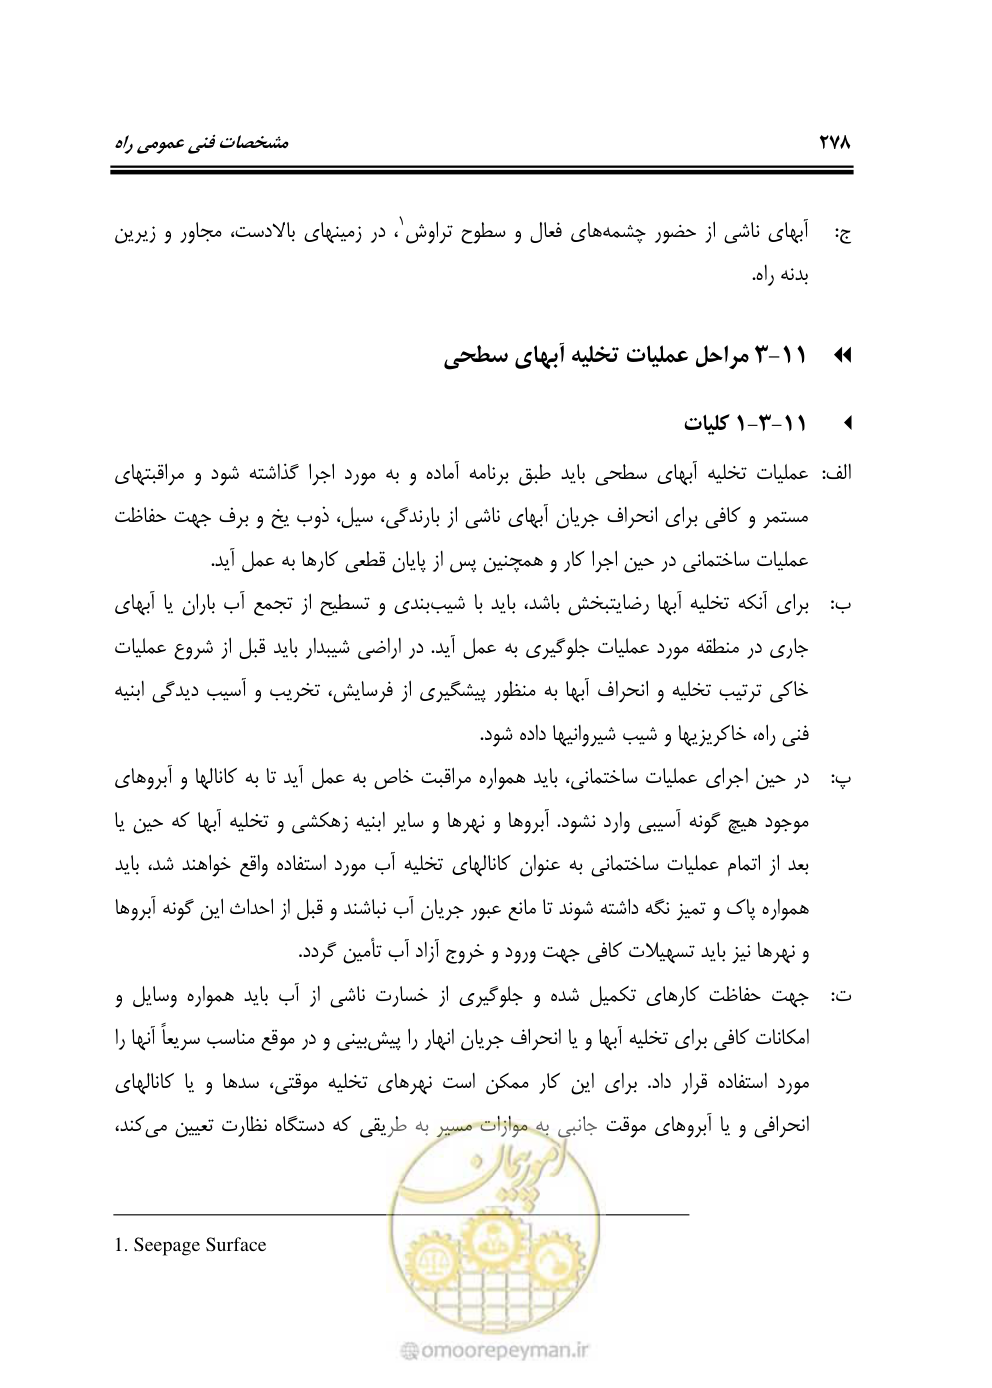 ۲۷۸ مشخصات فنی عمومی راه
ج: آبهای ناشی از حضور چشمه‌های فعال و سطوح تراوش۱، در زمینهای بالادست، مجاور و زیرین
بدنه راه.
۱۱-۳ مراحل عملیات تخلیه آبهای سطحی
۱۱-۳-۱ کلیات
الف: عملیات تخلیه آبهای سطحی باید طبق برنامه آماده و به مورد اجرا گذاشته شود و مراقبتهای
مستمر و کافی برای انحراف جریان آبهای ناشی از بارندگی، سیل، ذوب یخ و برف جهت حفاظت
عملیات ساختمانی در حین اجرا کار و همچنین پس از پایان قطعی کارها به عمل آید.
ب: برای آنکه تخلیه آبها رضایتبخش باشد، باید با شیب‌بندی و تسطیح از تجمع آب باران یا آبهای
جاری در منطقه مورد عملیات جلوگیری به عمل آید. در اراضی شیبدار باید قبل از شروع عملیات
خاکی ترتیب تخلیه و انحراف آبها به منظور پیشگیری از فرسایش، تخریب و آسیب دیدگی ابنیه
فنی راه، خاکریزیها و شیب شیروانیها داده شود.
پ: در حین اجرای عملیات ساختمانی، باید همواره مراقبت خاص به عمل آید تا به کانالها و آبروهای
موجود هیچ گونه آسیبی وارد نشود. آبروها و نهرها و سایر ابنیه زهکشی و تخلیه آبها که حین یا
بعد از اتمام عملیات ساختمانی به عنوان کانالهای تخلیه آب مورد استفاده واقع خواهند شد، باید
همواره پاک و تمیز نگه داشته شوند تا مانع عبور جریان آب نباشند و قبل از احداث این گونه آبروها
و نهرها نیز باید تسهیلات کافی جهت ورود و خروج آزاد آب تأمین گردد.
ت: جهت حفاظت کارهای تکمیل شده و جلوگیری از خسارت ناشی از آب باید همواره وسایل و
امکانات کافی برای تخلیه آبها و یا انحراف جریان انهار را پیش‌بینی و در موقع مناسب سریعاً آنها را
مورد استفاده قرار داد. برای این کار ممکن است نهرهای تخلیه موقتی، سدها و یا کانالهای
انحرافی و یا آبروهای موقت جانبی به موازات مسیر به طریقی که دستگاه نظارت تعیین می‌کند،
1. Seepage Surface
امور پیمان
omoorepeyman.ir